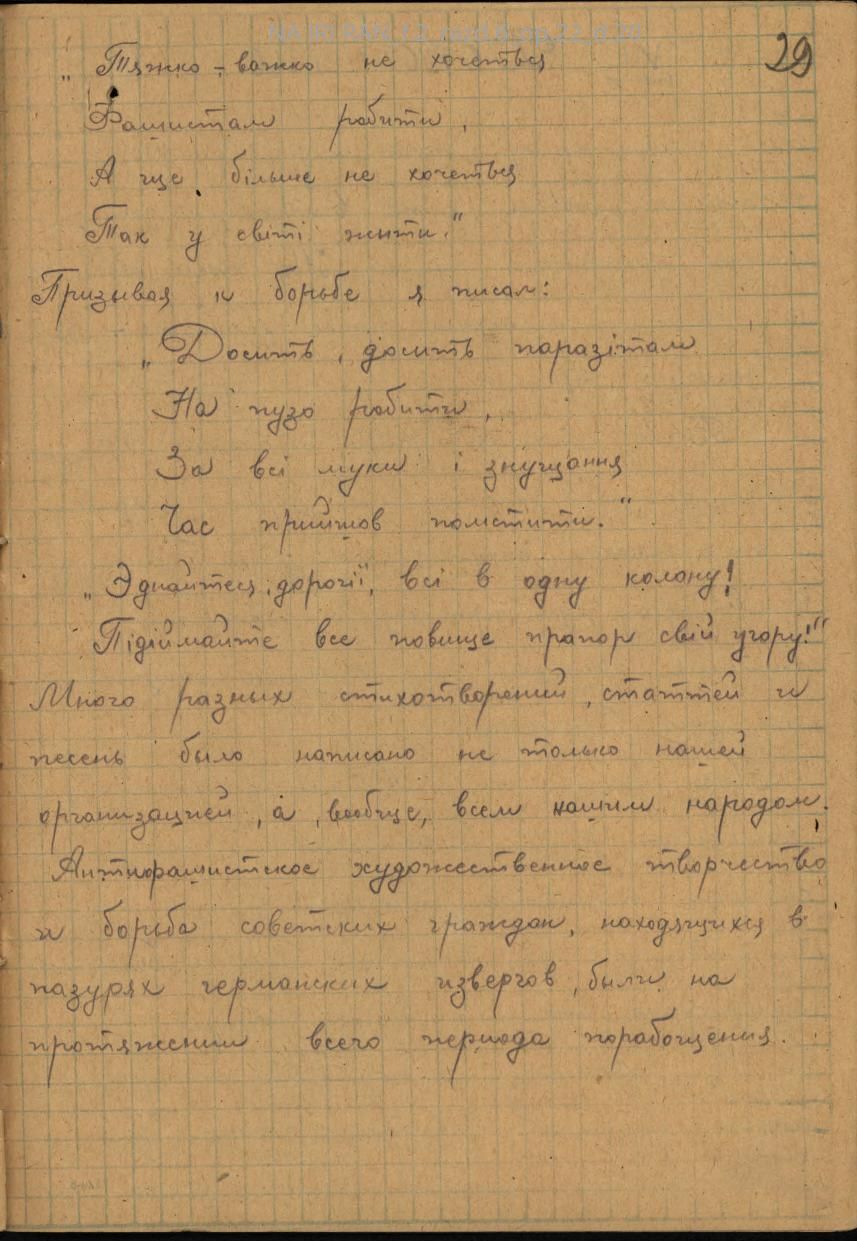 29
„Тяжко-важко не хочеться
Фашистам робити,
А ще більше не хочеться
Так у світі жити."
Призывая к борьбе я писал:
„Досить, досить паразітам
На пузо робити,
За всі муки і знущання
Час прийшов помстити."
„Эднайтеся, дорогії, всі в одну колону!
Підіймайте все повище прапор свій угору!"
Много разных стихотворений, статтей и
песень было написано не только нашей
организацией, а, вообще, всем нашим народом.
Антифашистское художественное творчество
и борьба советских граждан, находящихся в
пазурях германских извергов, были на
протяжении всего периода порабощения.